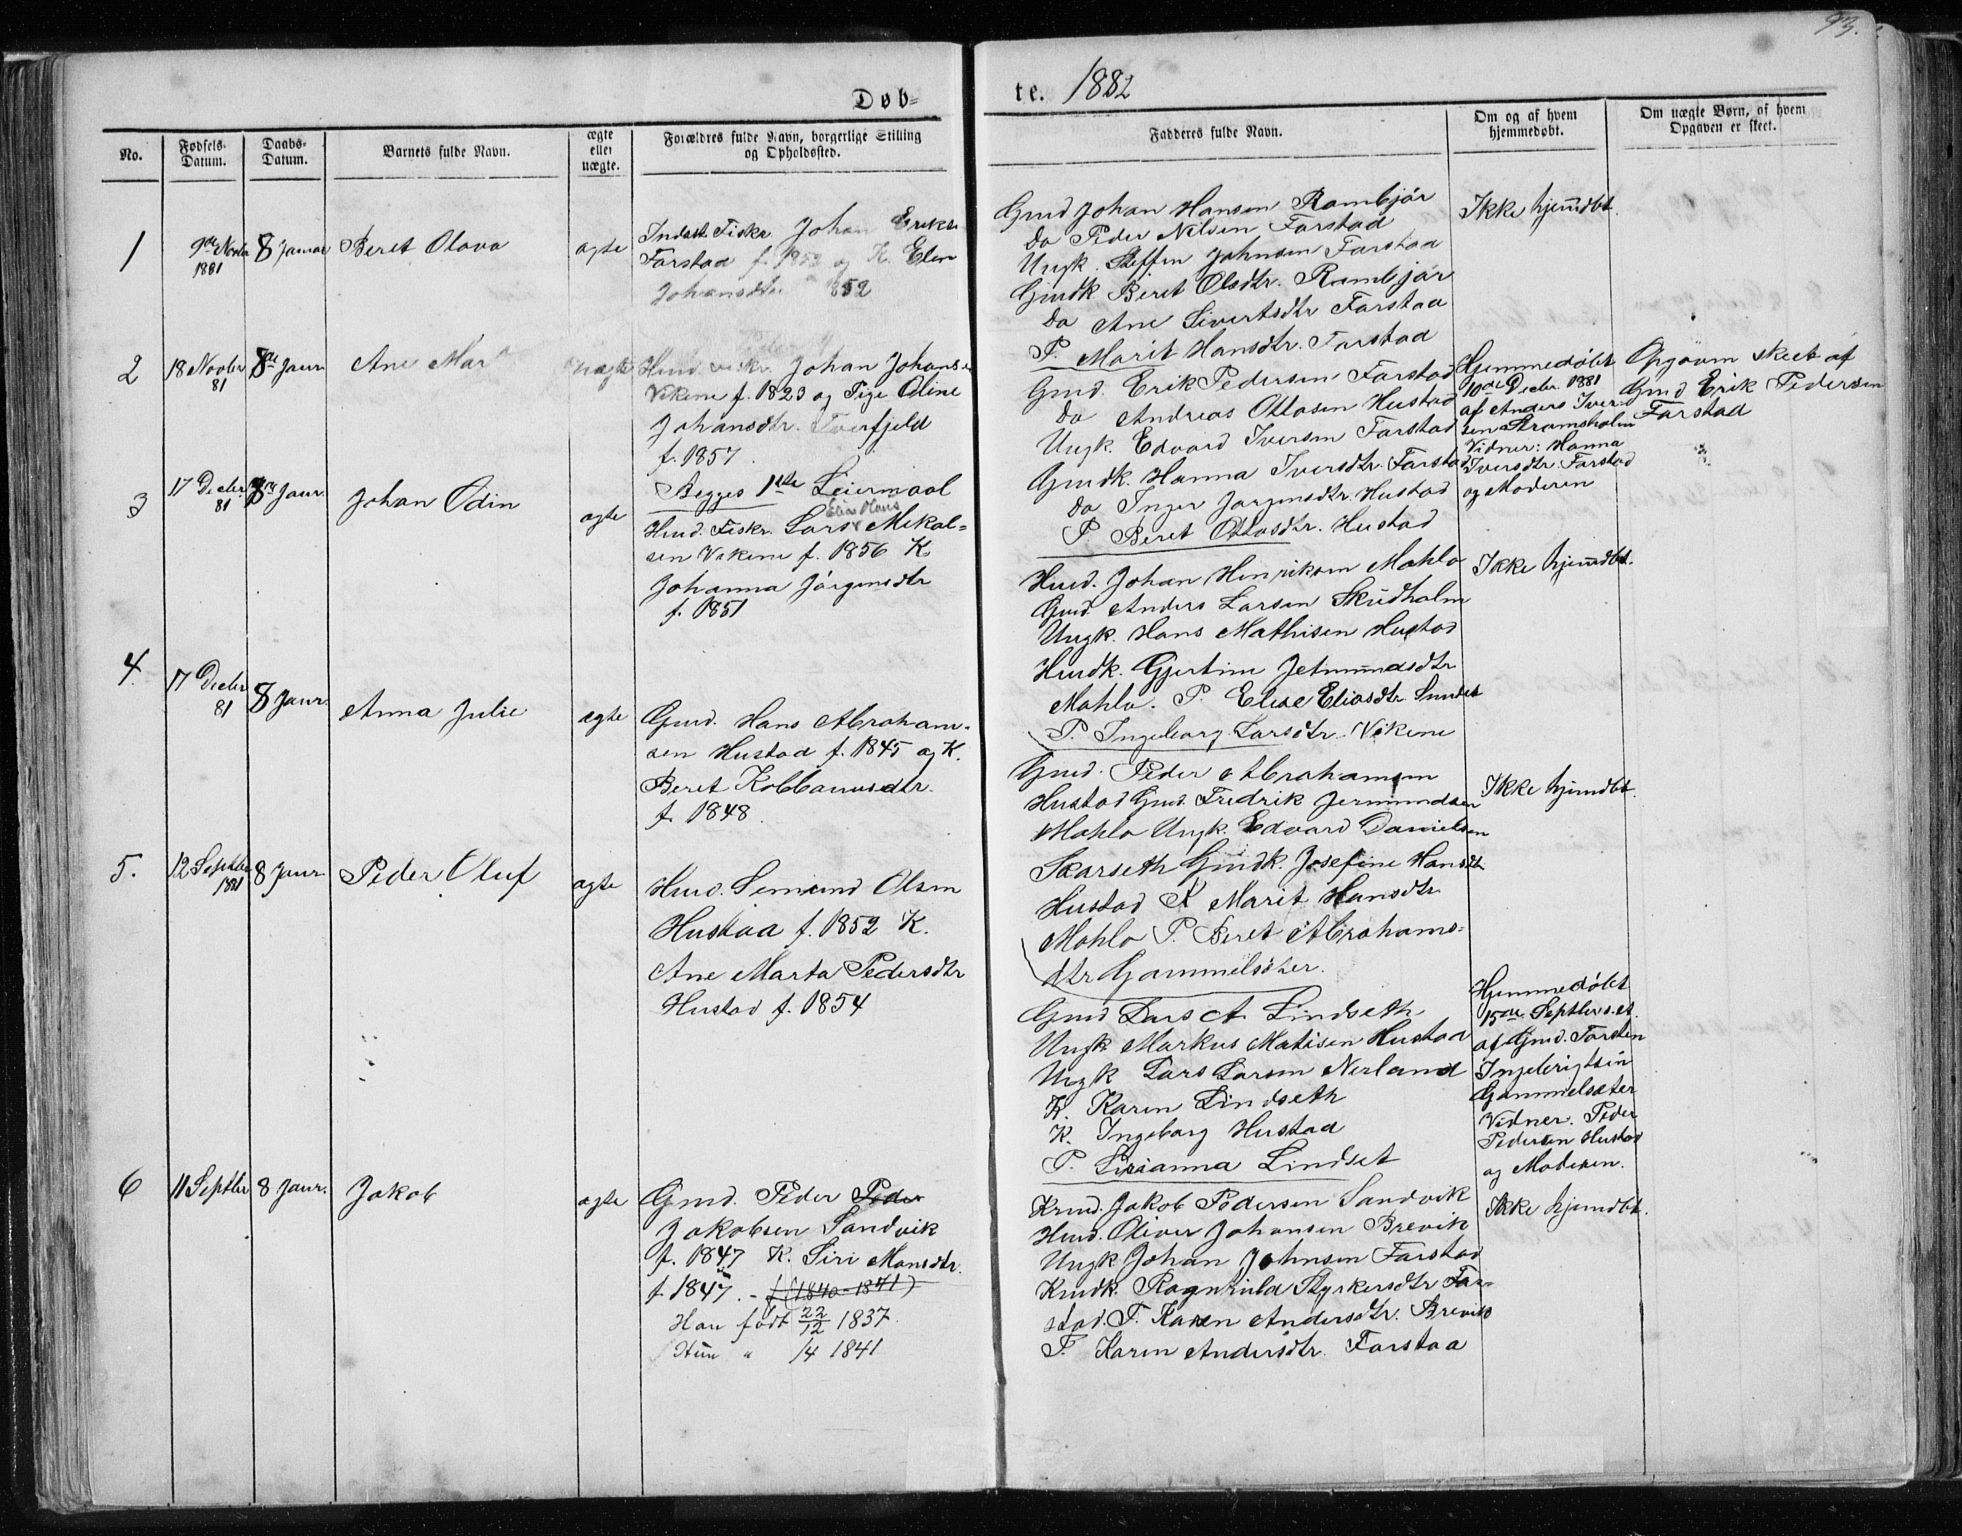 93.
Døb-
te. 1882
No.
Fødsels-
Datum.
Daabs-
Datum.
Barnets fulde Navn.
ægte
eller
uægte.
Forældres fulde Navn, borgerlige Stilling
og Opholdssted.
Fadderes fulde Navn.
Om og af hvem
hjemmedøbt.
Om uægte Børn, af hvem
Opgaven er skeet.
1
9de Novbr
1881
8 Januar
Beret Olava
ægte
Inderst Fiskr Johan Eriks
Farstad f. 1852 og K. Elen
Johansdtr 1852
Gmd Johan Hansen Rambjør
Do Peder Nilsen Farstad
Ungk. Steffen Johnsen Farstad
Gmdk Beret Olsdtr. Rambjør
Do Ane Sivertsdtr Farstad
P. Marit Hansdtr. Farstad
Ikke hjemdbt.
2
18 Novbr
81
8de Janr
Ane Mar
uægte
Husd. Johan Johans
Vikene f. 1823 og Pige Oline
Johansdtr. Tverfjeld
f. 1857.
Begges 1ste Leiermaal
Gmd. Erik Pedersen Farstad
Do Andreas Ottosen Hustad
Ungk. Edvard Iversen Farstad
Gmdk. Hanna Iversdtr. Farstad
Do Inger Jørgensdtr. Hustad
P Beret Ottosdtr. Hustad
Hjemmedøbt
10de Decbr. 1881
af Anders Iver-
sen Stramsholm
Vidner: Hanna
Iversdtr. Farstad
og Moderen
Opgaven skeet af
Gmd Erik Pedersen
Farstad
3
17 Decbr
81
8 Janr.
Johan Odin
ægte
Elias Hans
Husd. Fiskr. Lars Mikal-
sen Vikene f. 1856 K.
Johanna Jørgensdtr
f. 1851
Husd. Johan Henriksen Mahlo
Gmd. Anders Larsen Skudholm
Ungk. Hans Mathisen Hustad
Husdk. Gjertine Jetmundsdtr
Mahlo. P. Elise Eliasdtr Sundet
P. Ingeborg Larsdtr. Vikene
Ikke hjemdbt.
4.
17 Decbr
81
8 Janr.
Anna Julie
ægte
Gmd. Hans Abraham-
sen Hustad f. 1845 og K.
Beret Kolbanusdtr.
f. 1848.
Gmd. Peder Abrahamsen
Hustad Gmd. Fredrik Jermundsen
Mahlo Ungk. Edvard Danielsen
Skarseth Gmdk. Josefine Hansdtr
Hustad K Marit Hansdtr
Mahlo P. Beret Abrahams-
dtr Gammelsæter.
Ikke hjemdbt.
5.
12 Septbr
1881
8 Janr
Peder Oluf
ægte
Husd. Semund Olsen
Hustad f. 1852 K.
Ane Marta Pedersdtr
Hustad f. 1854
Gmd Lars A Lindseth
Ungk Markus Matisen Hustad
Ungk Lars Larsen Nerland
K. Karen Lindseth
K. Ingeborg Hustad
P. Lisianna Lindset
Hjemmedøbt
15de Septbr s.a.
af Gmd. Torsten
Ingebrigtsen
Gammelsæter
Vidner. Peder
Pedersen Hustad
og Moderen.
6
11 Septbr
8 Janr.
Jakob
ægte
Gmd. Peder Peder
Jakobsen Sandvik
f. 1847 K. Siri Mansdtr.
f. 1847. - f (1840-1841)
Han født 22/12 1837.
Hun " 14 1841
Kmd. Jakob Pedersen Sandvik
Husd. Oliver Johansen Brevik
Ungk Johan Johnsen Farstad
Kmdk. Ragnhilda Styrkersdtr Far-
stad. P. Karen Andersdtr. Brevik
P. Karen Andersdtr. Farstad
Ikke hjemdbt.